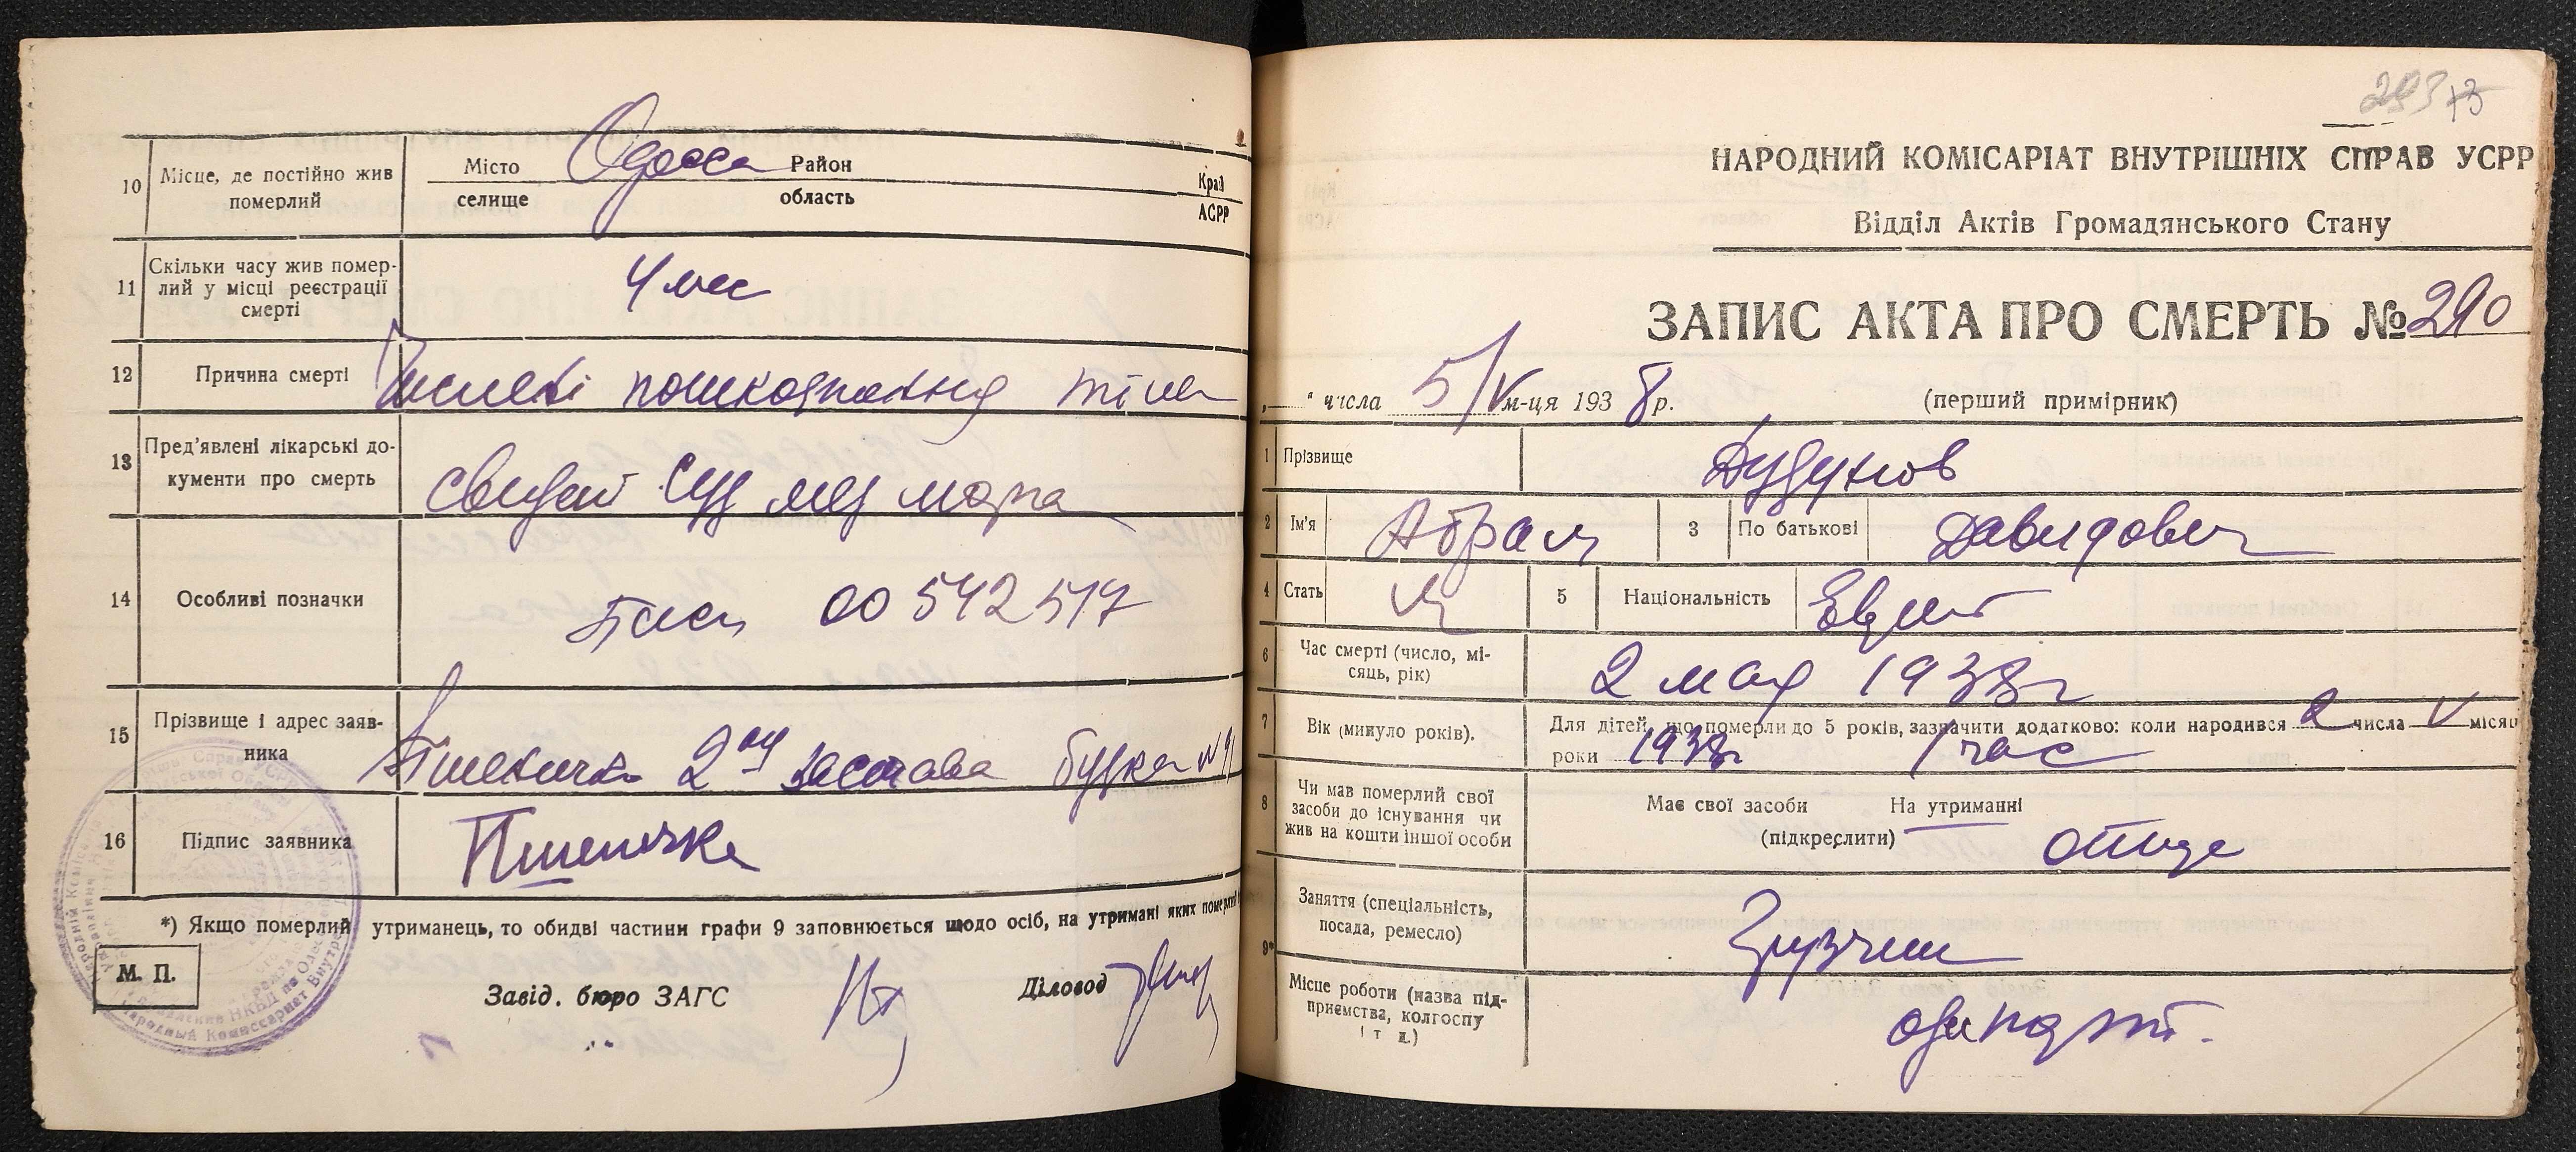 10 Місце, де постійно жив померлий
Місто Одесса Район Край
селище область АСРР
11 Скільки часу жив померлий у місці реєстрації смерті
4 мес
12 Причина смерті
пошкодження тіла
13 Пред'явлені лікарські документи про смерть
свидет суд мед морга
14 Особливі позначки
00 542 517
15 Прізвище і адрес заявника
Пшеничка 2ая застава будка №
16 Підпис заявника
Пшеничка
*) Якщо померлий утриманець, то обидві частини графи 9 заповнюється щодо осіб, на утримані яких померлий
М. П.
Завід. бюро ЗАГС Діловод
293
НАРОДНИЙ КОМІСАРІАТ ВНУТРІШНІХ СПРАВ УСРР
Відділ Актів Громадянського Стану
ЗАПИС АКТА ПРО СМЕРТЬ № 290
„ “ числа 5/V м-ця 1938 р. (перший примірник)
1 Прізвище Дудунов
2 Ім'я Абрам 3 По батькові Давидович
4 Стать м 5 Національність
6 Час смерті (число, місяць, рік)
2 мая 1938 г
7 Вік (минуло років).
Для дітей, що померли до 5 років, зазначити додатково: коли народився 2 числа V місяц
роки 1938г 1 час
8 Чи мав померлий свої засоби до існування чи жив на кошти іншої особи
Має свої засоби На утриманні
(підкреслити) отца
9* Заняття (спеціальність, посада, ремесло)
Грузчик
Місце роботи (назва підприємства, колгоспу і т. д.)